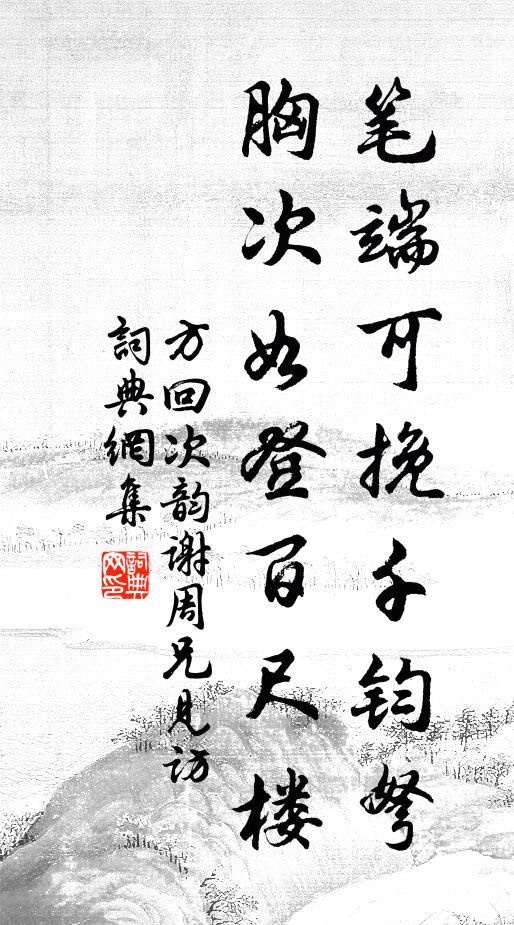 笔端可挽千钧弩
胸次如登百尺楼
方回次韵谢周兄见访
詞典網集
詞典网印